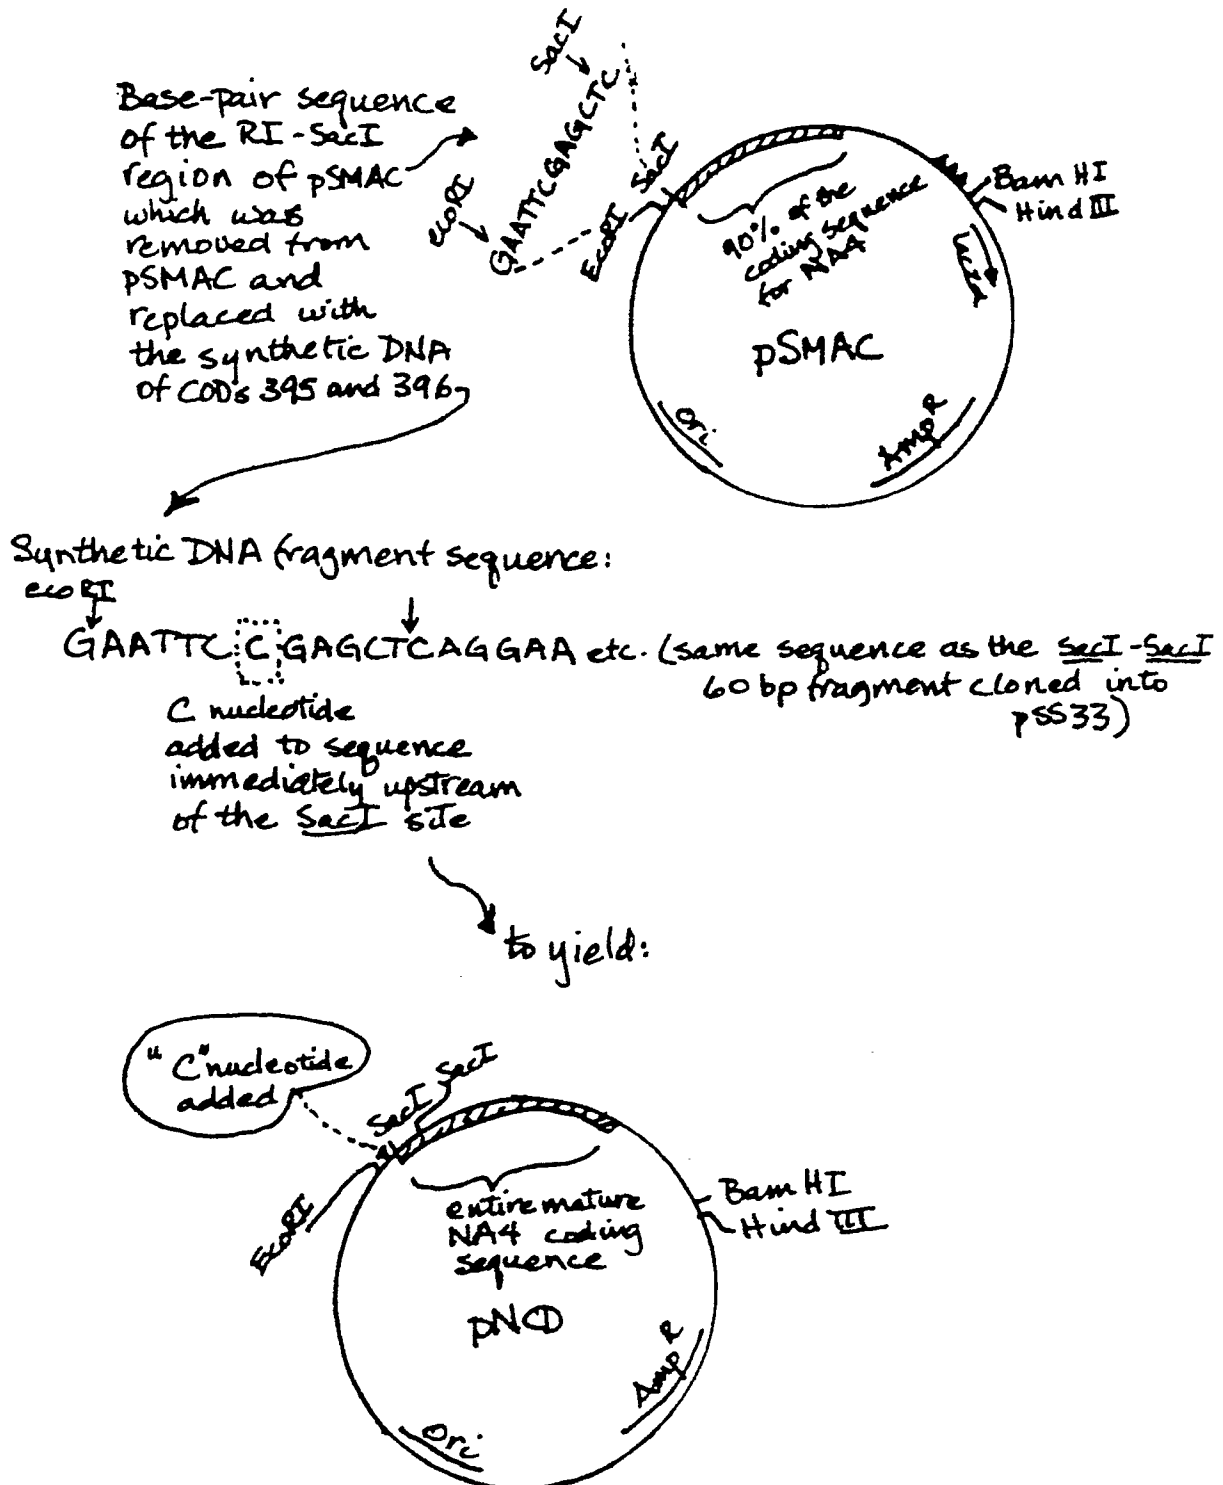 Base-pair sequence
of the RI-SacI
region of pSMAC
which was
removed from
pSMAC and
replaced with
the synthetic DNA
of COD's 395 and 396
SacI
GAATTCGAGCTC
ecoRI
SacI
EcoRI
90% of the
coding sequence
for NA4
Bam HI
Hind III
pSMAC
Ori
AmpR
Synthetic DNA fragment sequence:
ecoRI
GAATTC C GAGCTCAGGAA etc. (same sequence as the SacI-SacI
60 bp fragment cloned into
pSS33)
C nucleotide
added to sequence
immediately upstream
of the SacI site
to yield:
"C" nucleotide
added
SacI
SacI
EcoRI
entire mature
NA4 coding
sequence
Bam HI
Hind III
pNCD
AmpR
Ori